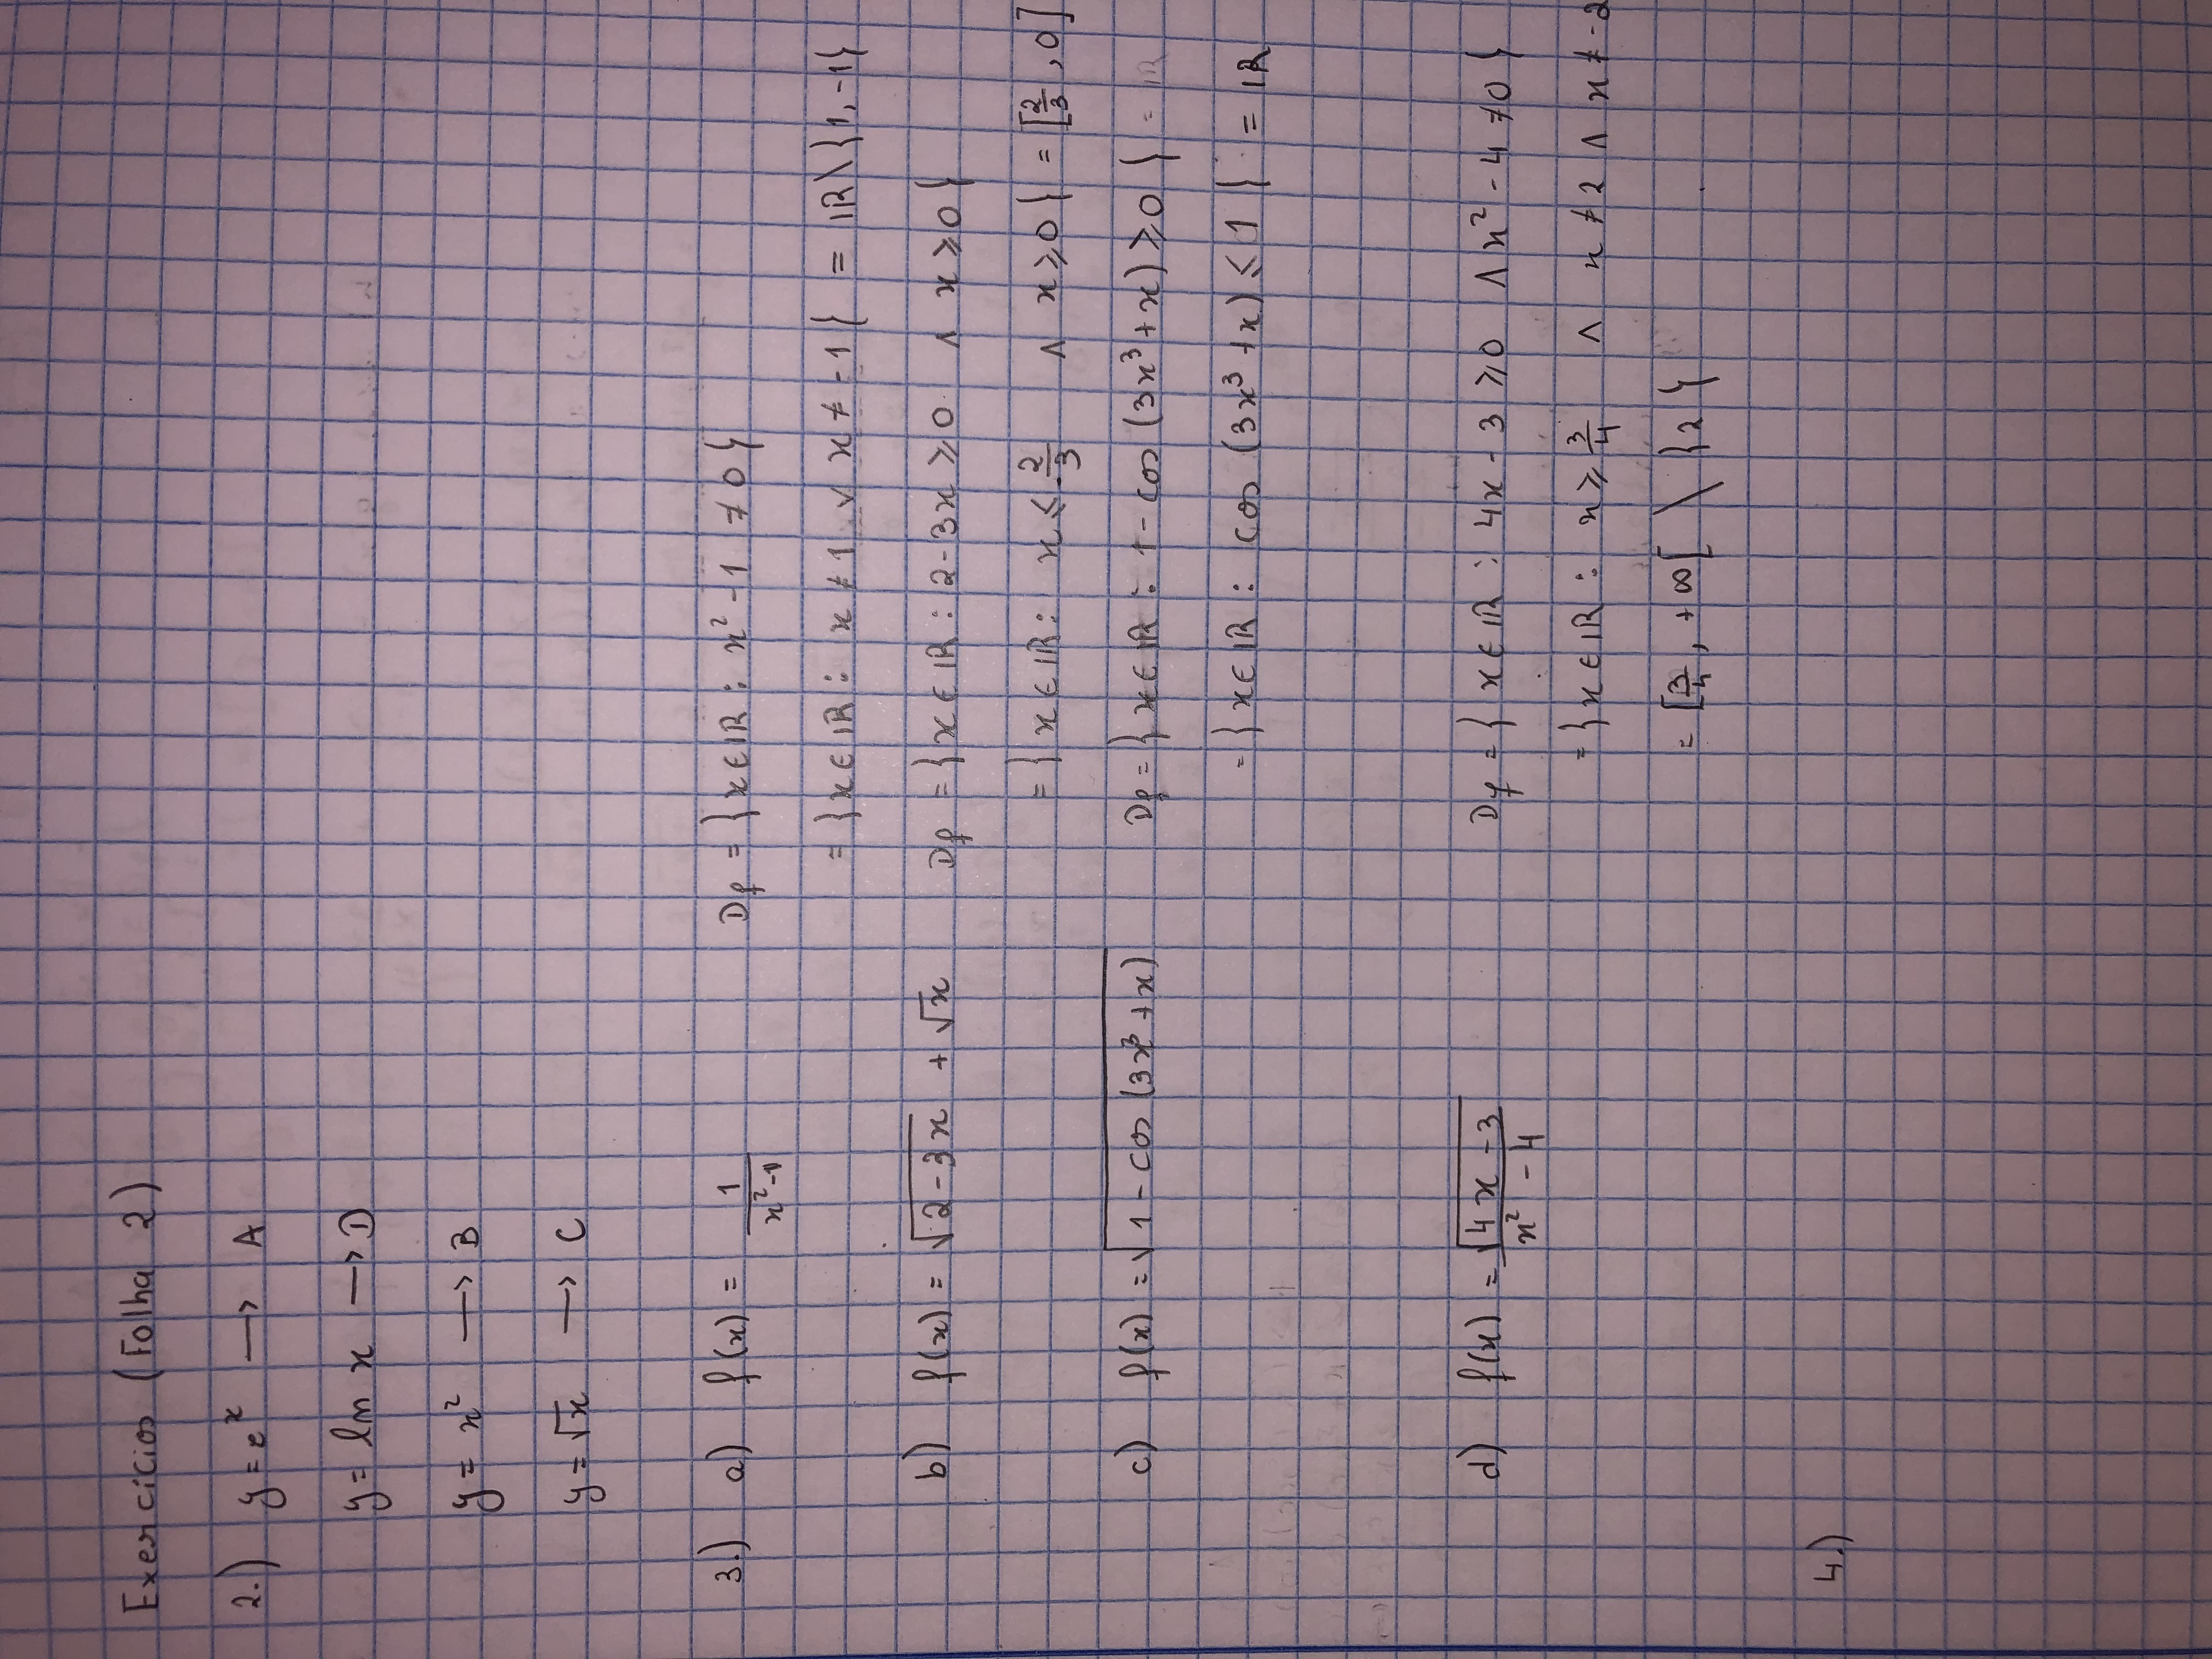 Exercícios (Folha 2)
2.) y = e^x → A
y = ln x → D
y = x² → B
y = √x → C
3.) a) f(x) = 1/(x²-1) Df = {x ∈ IR : x² - 1 ≠ 0}
= {x ∈ IR : x ≠ 1 ∨ x ≠ -1} = IR \ {1, -1}
b) f(x) = √(2-3x) + √x Df = {x ∈ IR : 2-3x ≥ 0 ∧ x ≥ 0}
= {x ∈ IR : x ≤ 2/3 ∧ x ≥ 0} = [2/3, 0]
c) f(x) = √(1 - cos (3x³ + x)) Df = {x ∈ IR : 1 - cos (3x³ + x) ≥ 0} = IR
= {x ∈ IR : cos (3x³ + x) ≤ 1} = IR
d) f(x) = √(4x - 3)/(x² - 4) Df = {x ∈ IR : 4x - 3 ≥ 0 ∧ x² - 4 ≠ 0}
= {x ∈ IR : x ≥ 3/4 ∧ x ≠ 2 ∧ x ≠ -2
= [3/4, +∞[ \ {2}
4.)